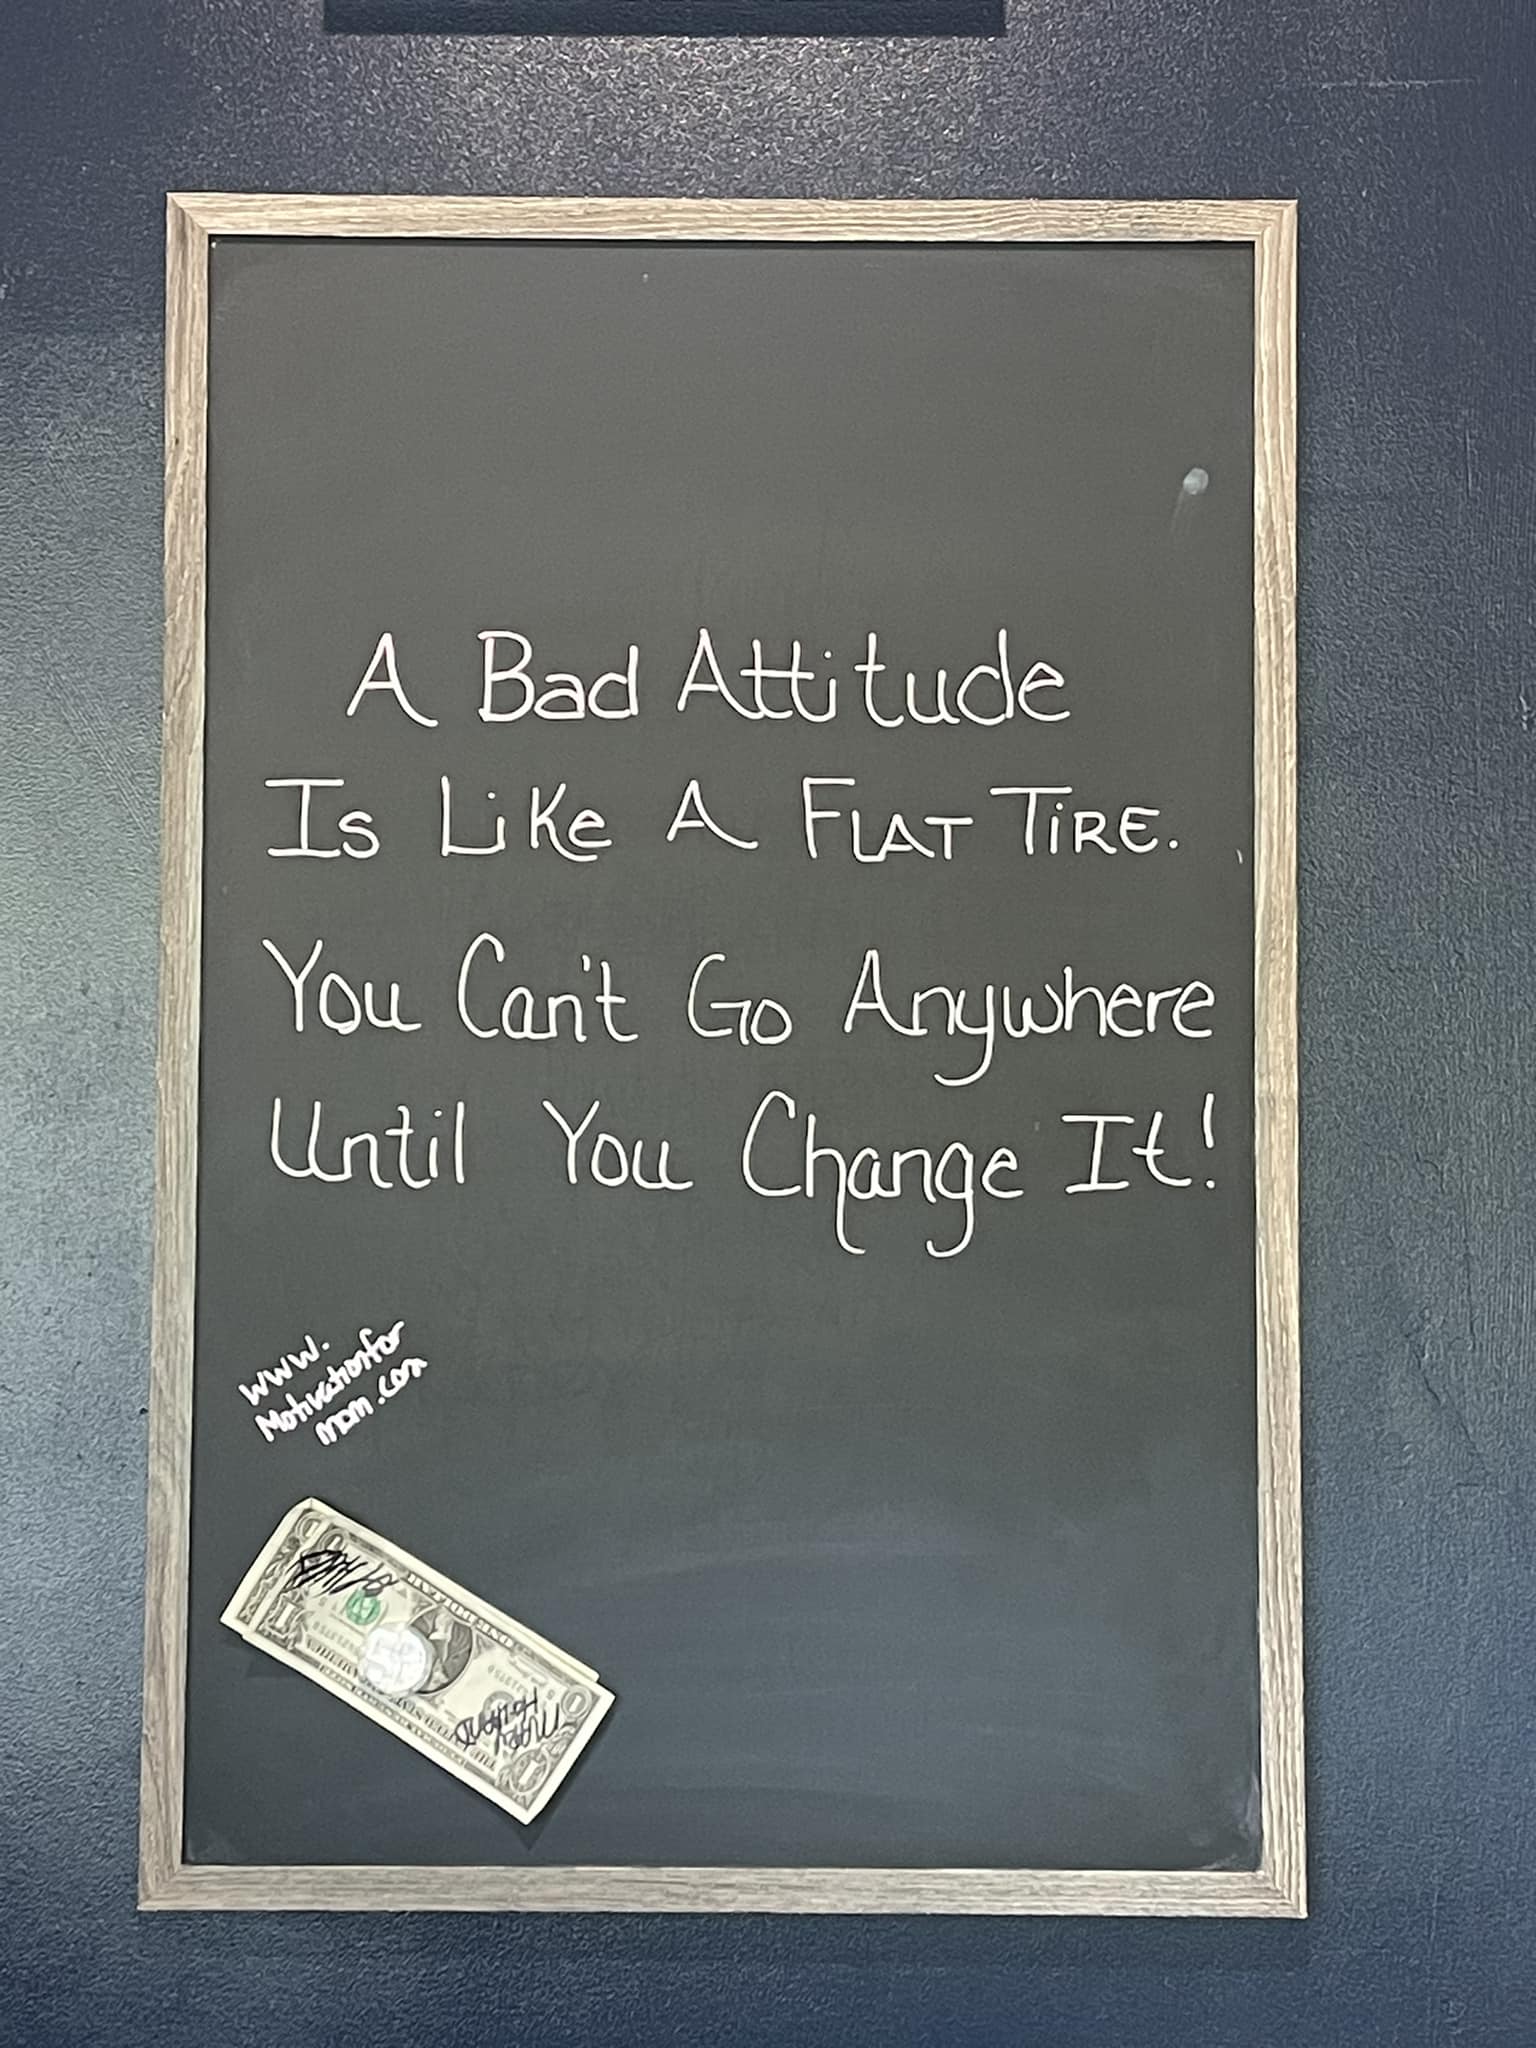 A Bad Attitude
Is Like A Flat Tire.
You Can't Go Anywhere
Until You Change It!
www.
Motivationfor
mom.com
Mary
Holland